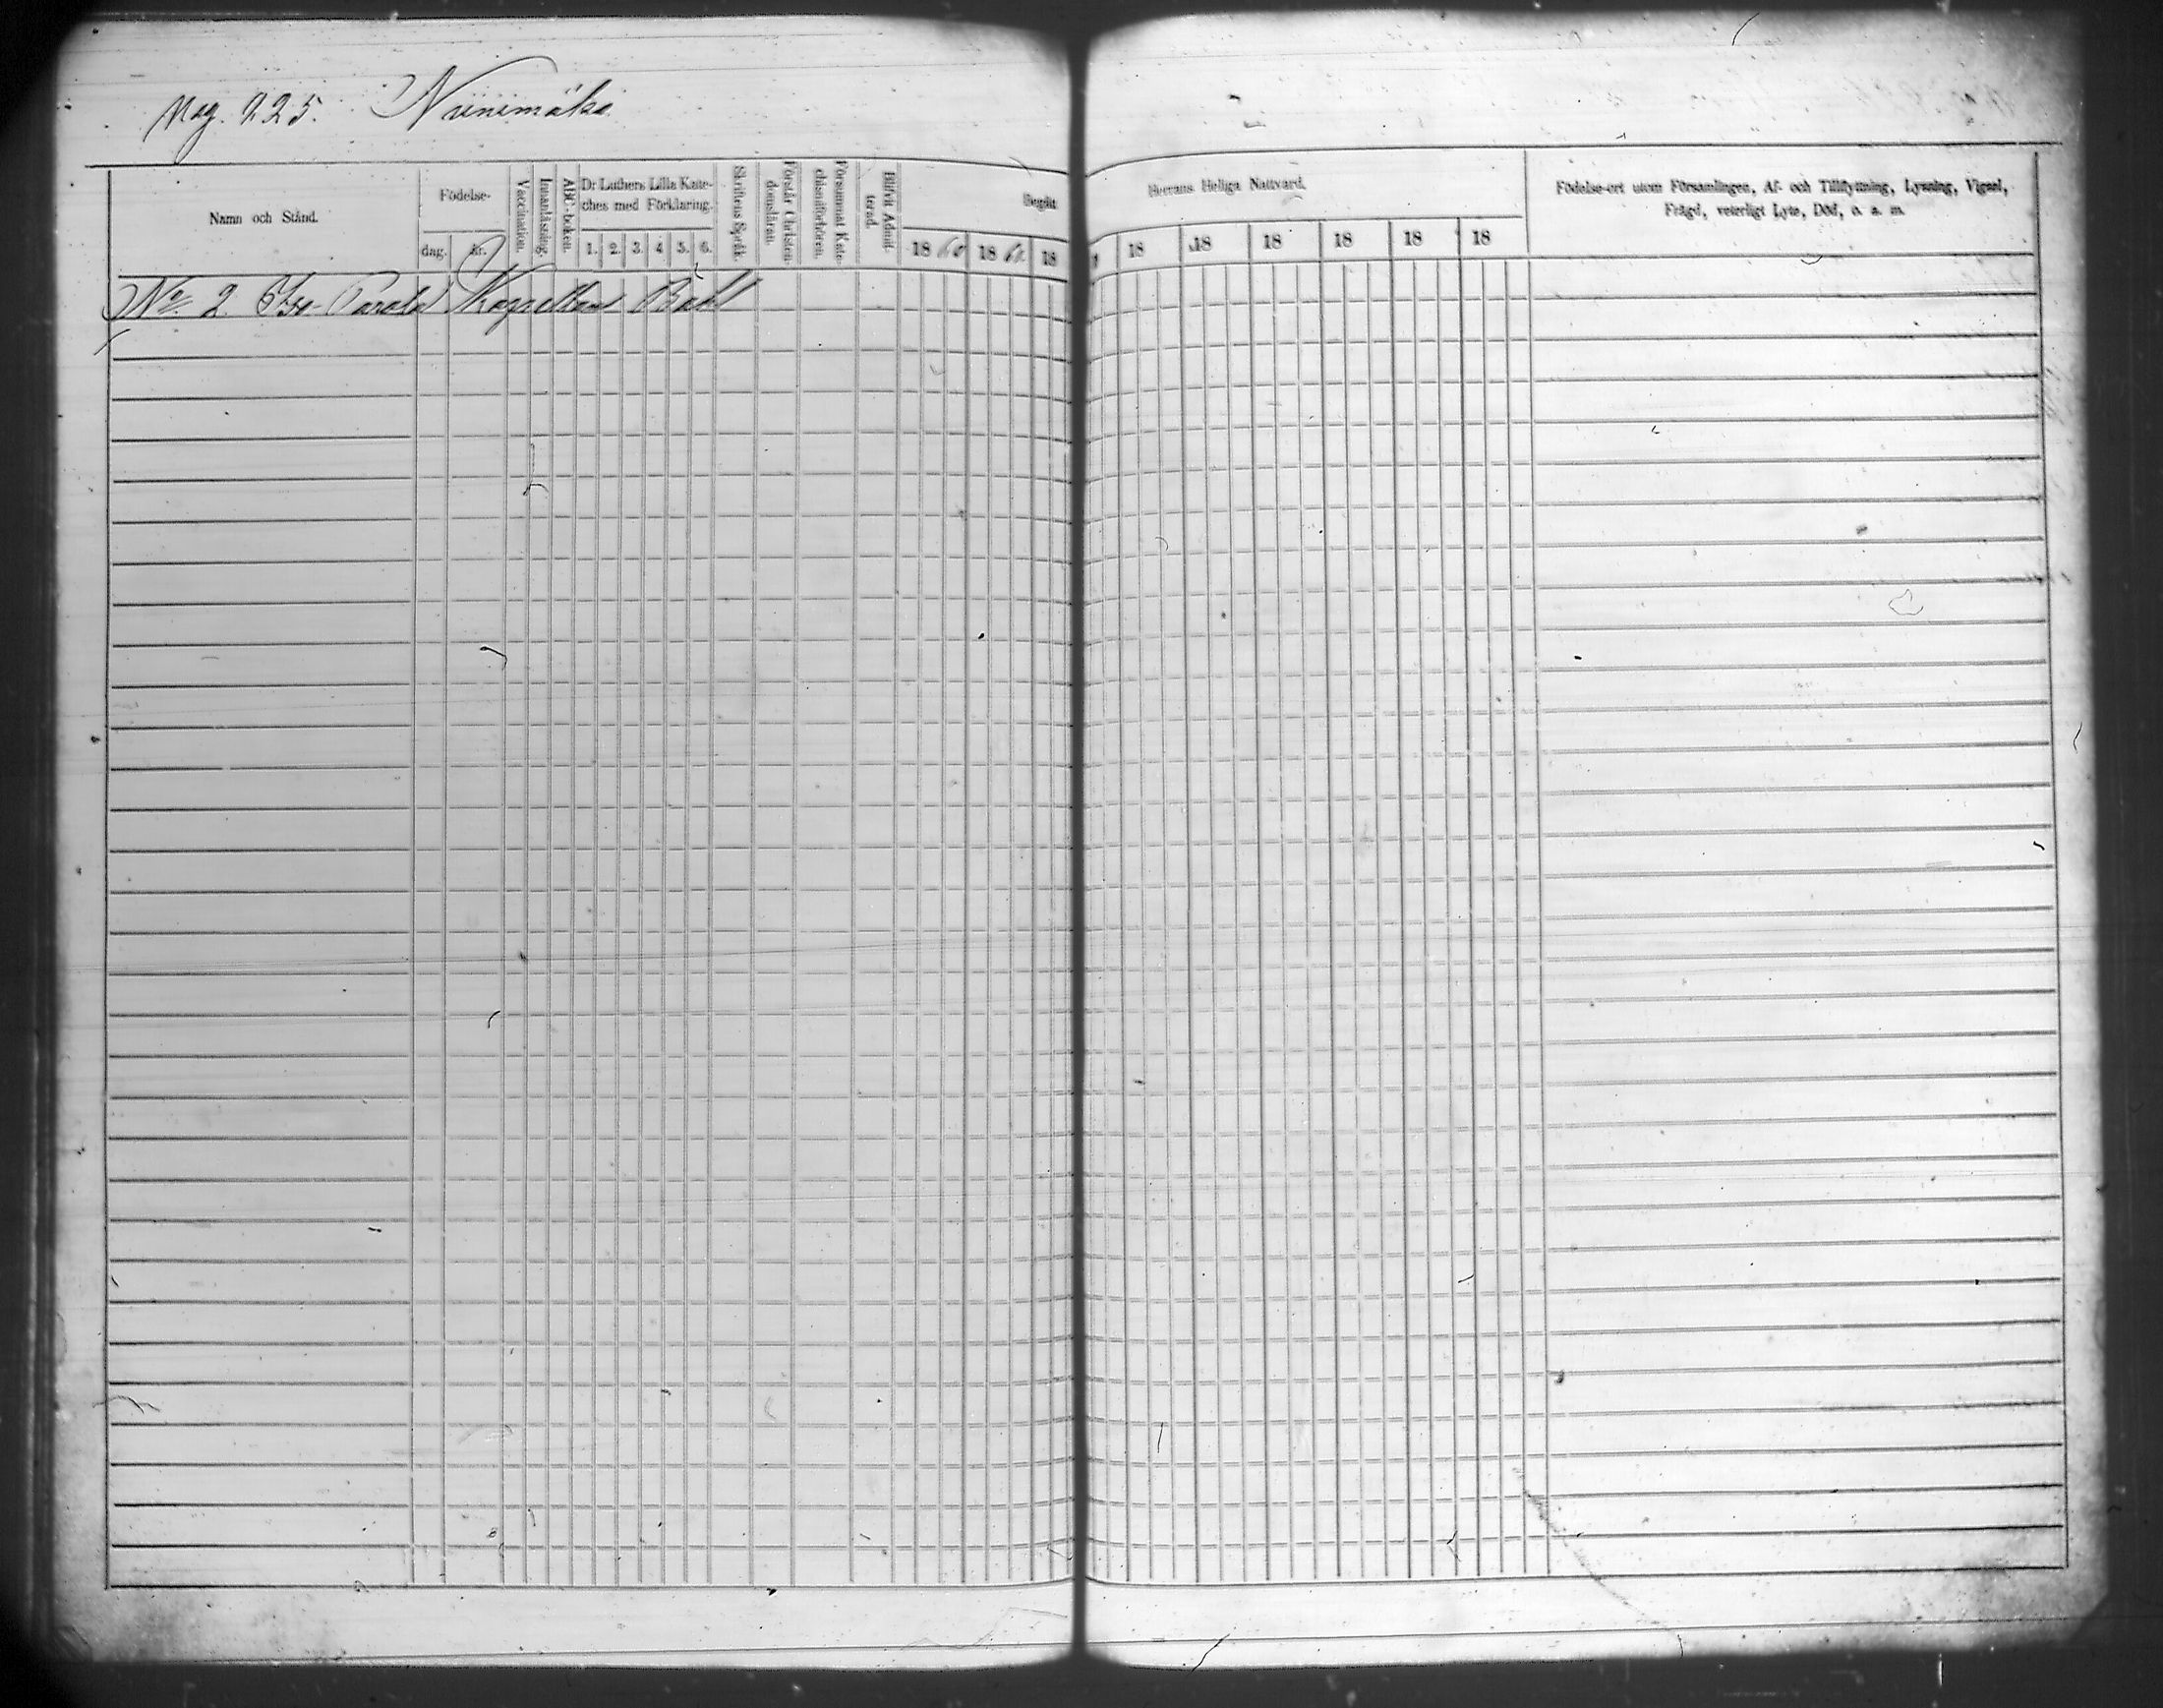 Mag. 225. Niinimäki
Namn och Stånd.
Födelse-
dag. år.
Vaccination.
Innanläsning.
ABC-boken.
Dr Luthers Lilla Kate-
ches med Förklaring.
1. 2. 3. 4. 5. 6.
Skriftens Språk.
Förstår Christen-
domsläran.
Försummat Kate-
chismiförhören.
Blifvit Admit-
terad.
Begått
18 60 18 61 18
Herrans Heliga Nattvard.
18 18 18 18 18 18
Födelse-ort utom Församlingen, Af- och Tillflyttning, Lysning, Vigsel,
Frägd, veterligt Lyte, Död, o. s. m.
No 2. Kapellans Bohl